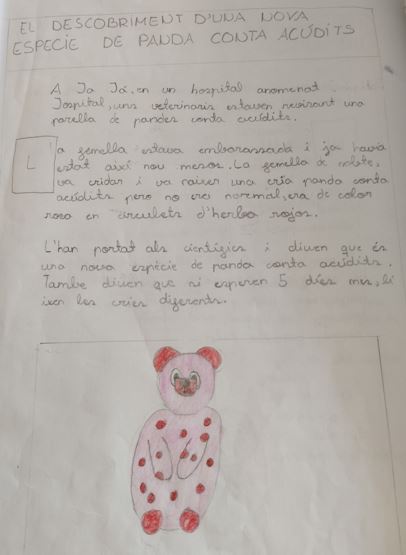 EL DESCOBRIMENT D'UNA NOVA
ESPECIE DE PANDA CONTA ACÚDITS
A Ja Já, en un hospital anomenat
Jospital, uns veterinaris estaven revisant una
parella de pandes conta acúdits.
La femella estava embarassada i ja havia
estat així nou mesos. La femella de
va cridar i va naixer una cría panda conta
acúdits pero no era normal, era de color
rosa en circulets d'herba rojos.
L'han portat als científics i diuen que és
una nova espècie de panda conta acúdits.
Tambe diuen que si esperen 5 díes mes, li
ixen les cries diferents.